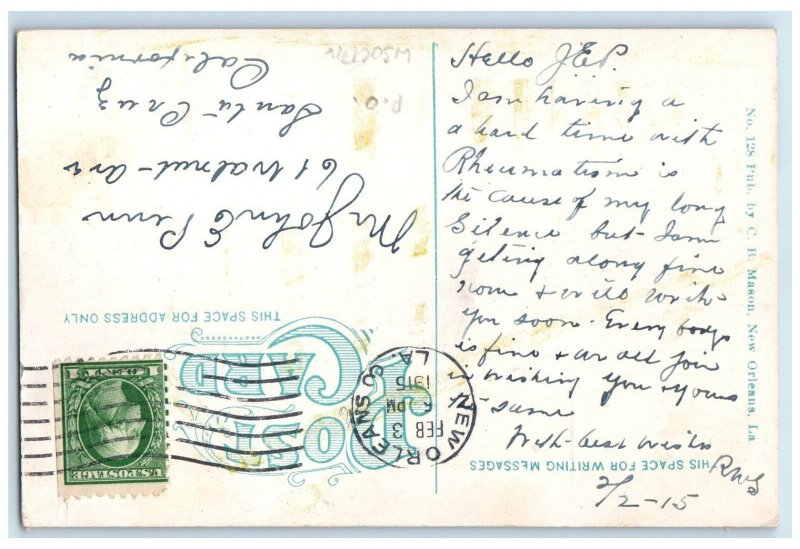 Hello J.E.P.
I am having a
a hard time with
Rheumatism is
the cause of my long
Silence but I am
geting along fine
now & will write
you soon. Every body
is fine & we all join
in wishing you & yours
the same
With best wishes
RWS
2/2-15
THIS SPACE FOR WRITING MESSAGES
No. 128 Pub. by C. B. Mason, New Orleans, La.
POST CARD
THIS SPACE FOR ADDRESS ONLY
NEW ORLEANS
LA.
FEB 3
6 PM
1915
U.S. POSTAGE
Mr John E Penn
61 Walnut Ave
Santa Cruz
California
P.O.